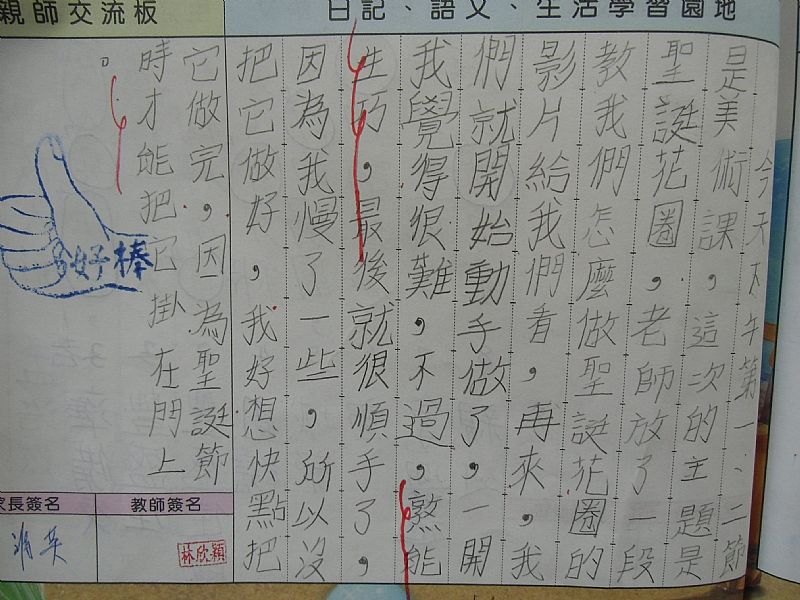 日記、語文、生活學習園地
今天下午第一、二節
是美術課，這次的主題是
聖誕花圈，老師放了一段
教我們怎麼做聖誕花圈的
影片給我們看，再來，我
們就開始動手做了，一開
我覺得很難，不過，熟能
生巧，最後就很順手了，
因為我慢了一些，所以沒
把它做好，我好想快點把
它做完，因為聖誕節
時才能把它掛在門上
。
親師交流板
好棒
教師簽名
林欣穎
家長簽名